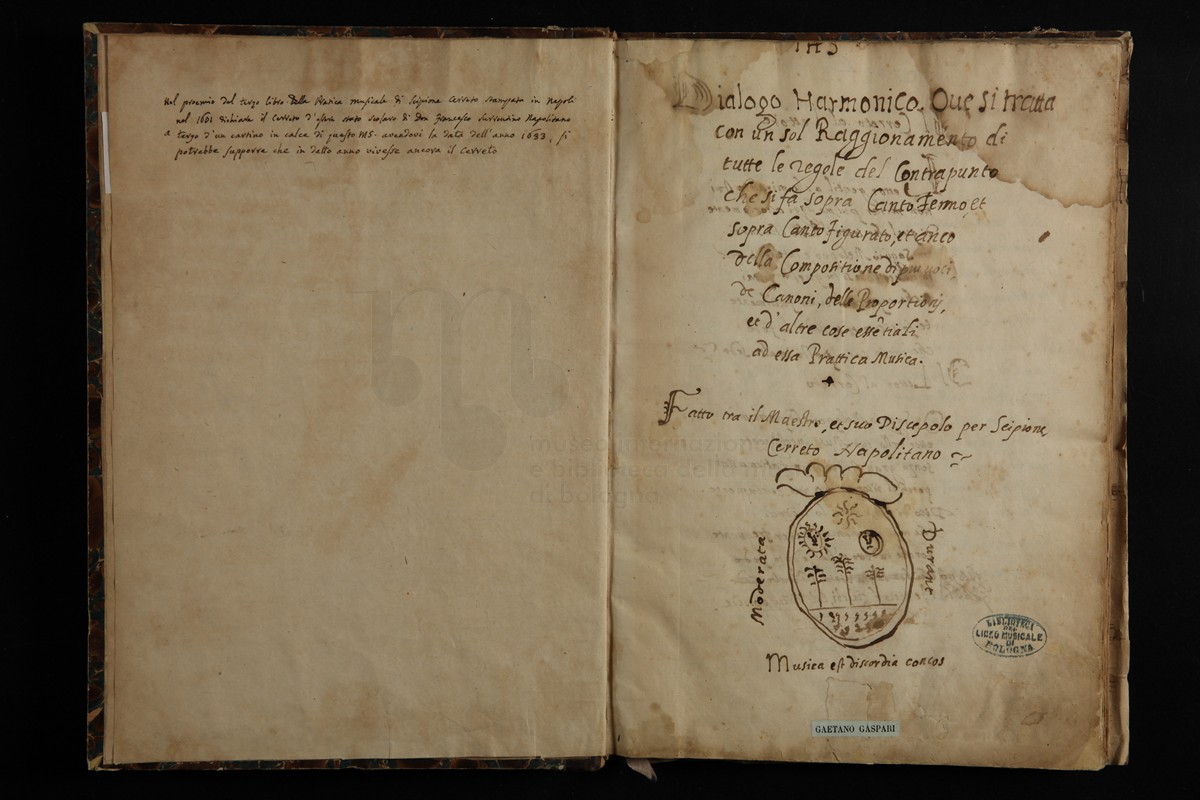 Nel proemio del terzo libro della Pratica musicale di Scipione Cerreto stampata in Napoli
nel 1601 dichiara il Cerreto d'essere stato scolaro di Don Francesco Napolitano
a tergo d'un cartino in calce di questo MS. avendovi la data dell'anno 1633, si
potrebbe supporre che in detto anno vivesse ancora il Cerreto
IHS
Dialogo Harmonico. Oue si tratta
con un sol Raggionamento di
tutte le regole del Contrapunto
che si fà sopra Canto Fermo, et
sopra Canto Figurato, et anco
della Compositione di piu uoci,
de Canoni, delle Proportionj,
et d'altre cose essẽtiali
ad essa Prattica Musica.
Fatto tra il Maestro, et suo Discepolo per Scipione
Cerreto Napolitano
Moderata
Durant
Musica est discordia concos
BIBLIOTECA
DEL
LICEO MUSICALE
DI
BOLOGNA
GAETANO GASPARI
museo internazion
e biblioteca della
di bologna